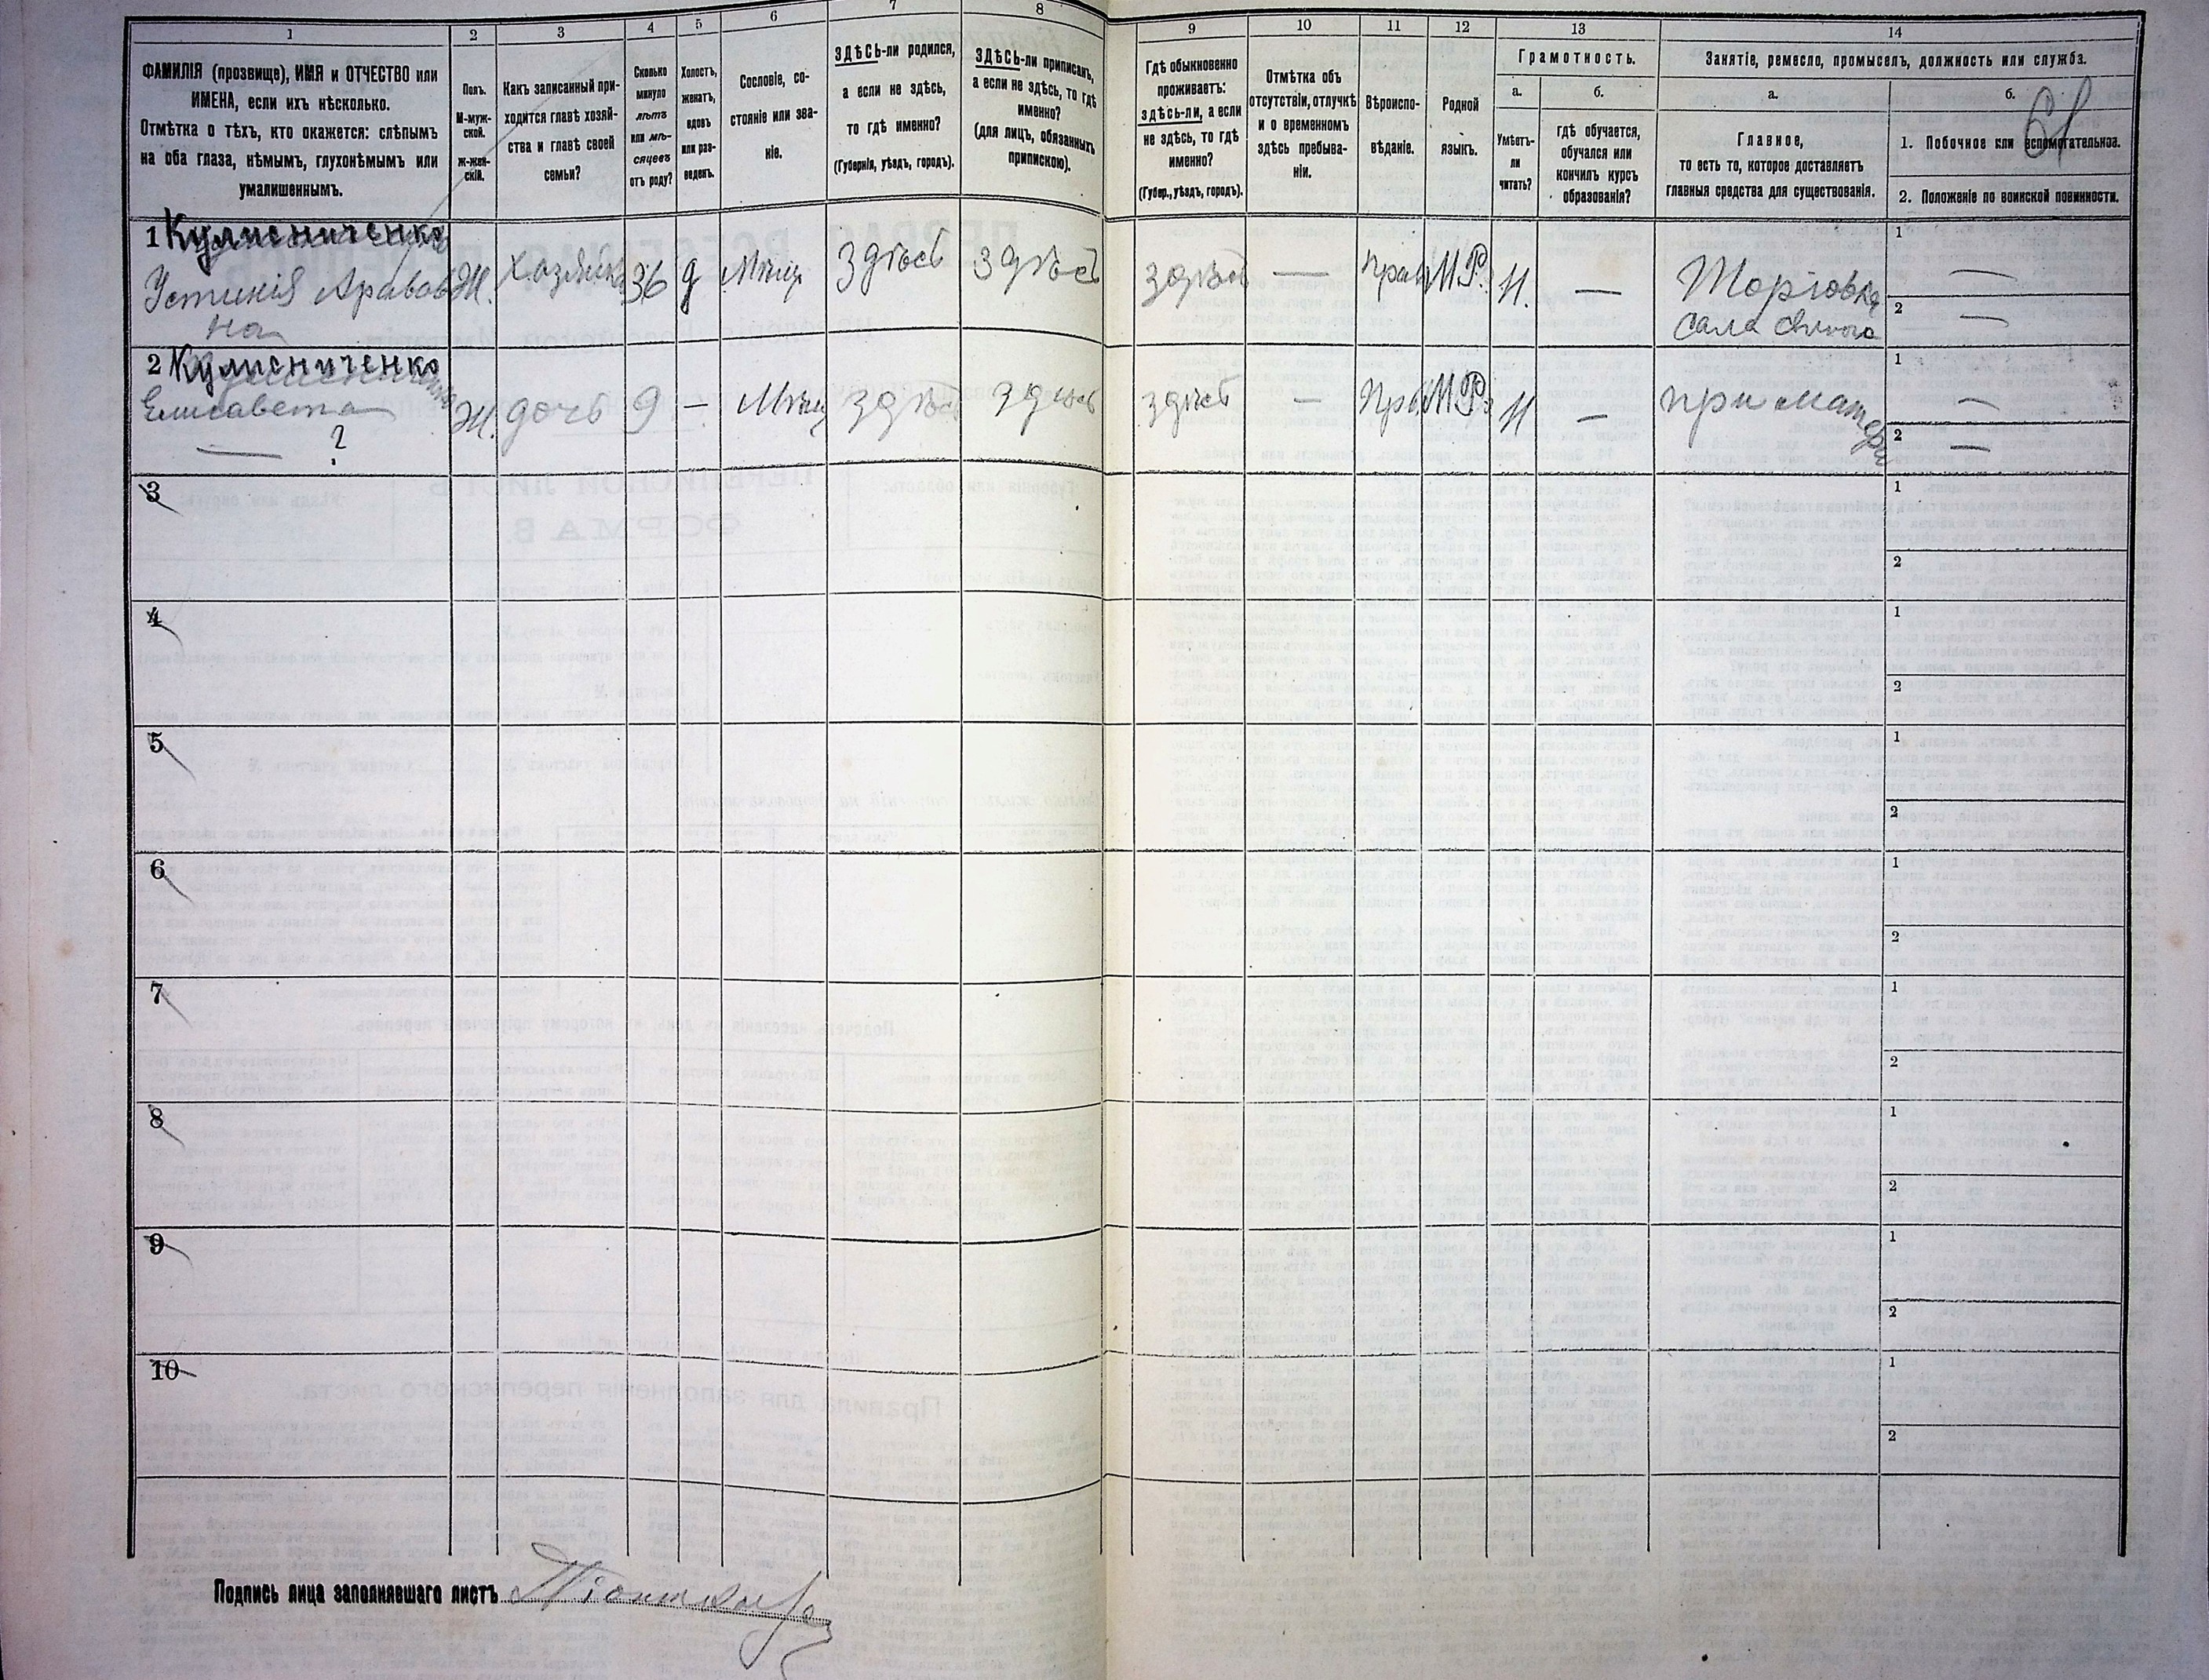 1
2
3
4
5
6
7
8
9
10
11
12
13
14
ФАМИЛІЯ (прозвище), ИМЯ и ОТЧЕСТВО или
ИМЕНА, если ихъ нѣсколько.
Отмѣтка о тѣхъ, кто окажется: слѣпымъ
на оба глаза, нѣмымъ, глухонѣмымъ или
умалишеннымъ.
Полъ.
М-муж-
ской.
Ж-жен-
скій.
Какъ записанный при-
ходится главѣ хозяй-
ства и главѣ своей
семьи?
Сколько
минуло
лѣтъ
или мѣ-
сяцевъ
отъ роду?
Холостъ,
женатъ,
вдовъ
или раз-
веденъ.
Сословіе, со-
стояніе или зва-
ніе.
ЗДѢСЬ-ли родился,
а если не здѣсь,
то гдѣ именно?
(Губернія, уѣздъ, городъ).
ЗДѢСЬ-ли приписанъ,
а если не здѣсь, то гдѣ
именно?
(для лицъ, обязанныхъ
припискою).
Гдѣ обыкновенно
проживаетъ:
здѣсь-ли, а если
не здѣсь, то гдѣ
именно?
(Губер., уѣздъ, городъ).
Отмѣтка объ
отсутствіи, отлучкѣ
и о временномъ
здѣсь пребыва-
ніи.
Вѣроиспо-
вѣданіе.
Родной
языкъ.
Грамотность.
а.
Умѣетъ-
ли
читать?
б.
гдѣ обучается,
обучался или
кончилъ курсъ
образованія?
Занятіе, ремесло, промыселъ, должность или служба.
а.
Главное,
то есть то, которое доставляетъ
главныя средства для существованія.
б.
61
1. Побочное или вспомогательное.
2. Положеніе по воинской повинности.
1 Кулисниченко
Устинія
на
Ж. Хозяйка 36 д Мѣщ здѣсь здѣсь здѣсь — Прав М.Р. Н. — Торговка
сала свиного
1 —
2 —
2 Кулисниченко
Елисавета
— ?
Ж. дочь 9 — Мѣщ здѣсь здѣсь здѣсь — Прав М.Р. Н — при матери
1 —
2 —
3
1
2
4
1
2
5
1
2
6
1
2
7
1
2
8
1
2
9
1
2
10
1
2
Подпись лица заполнявшаго листъ